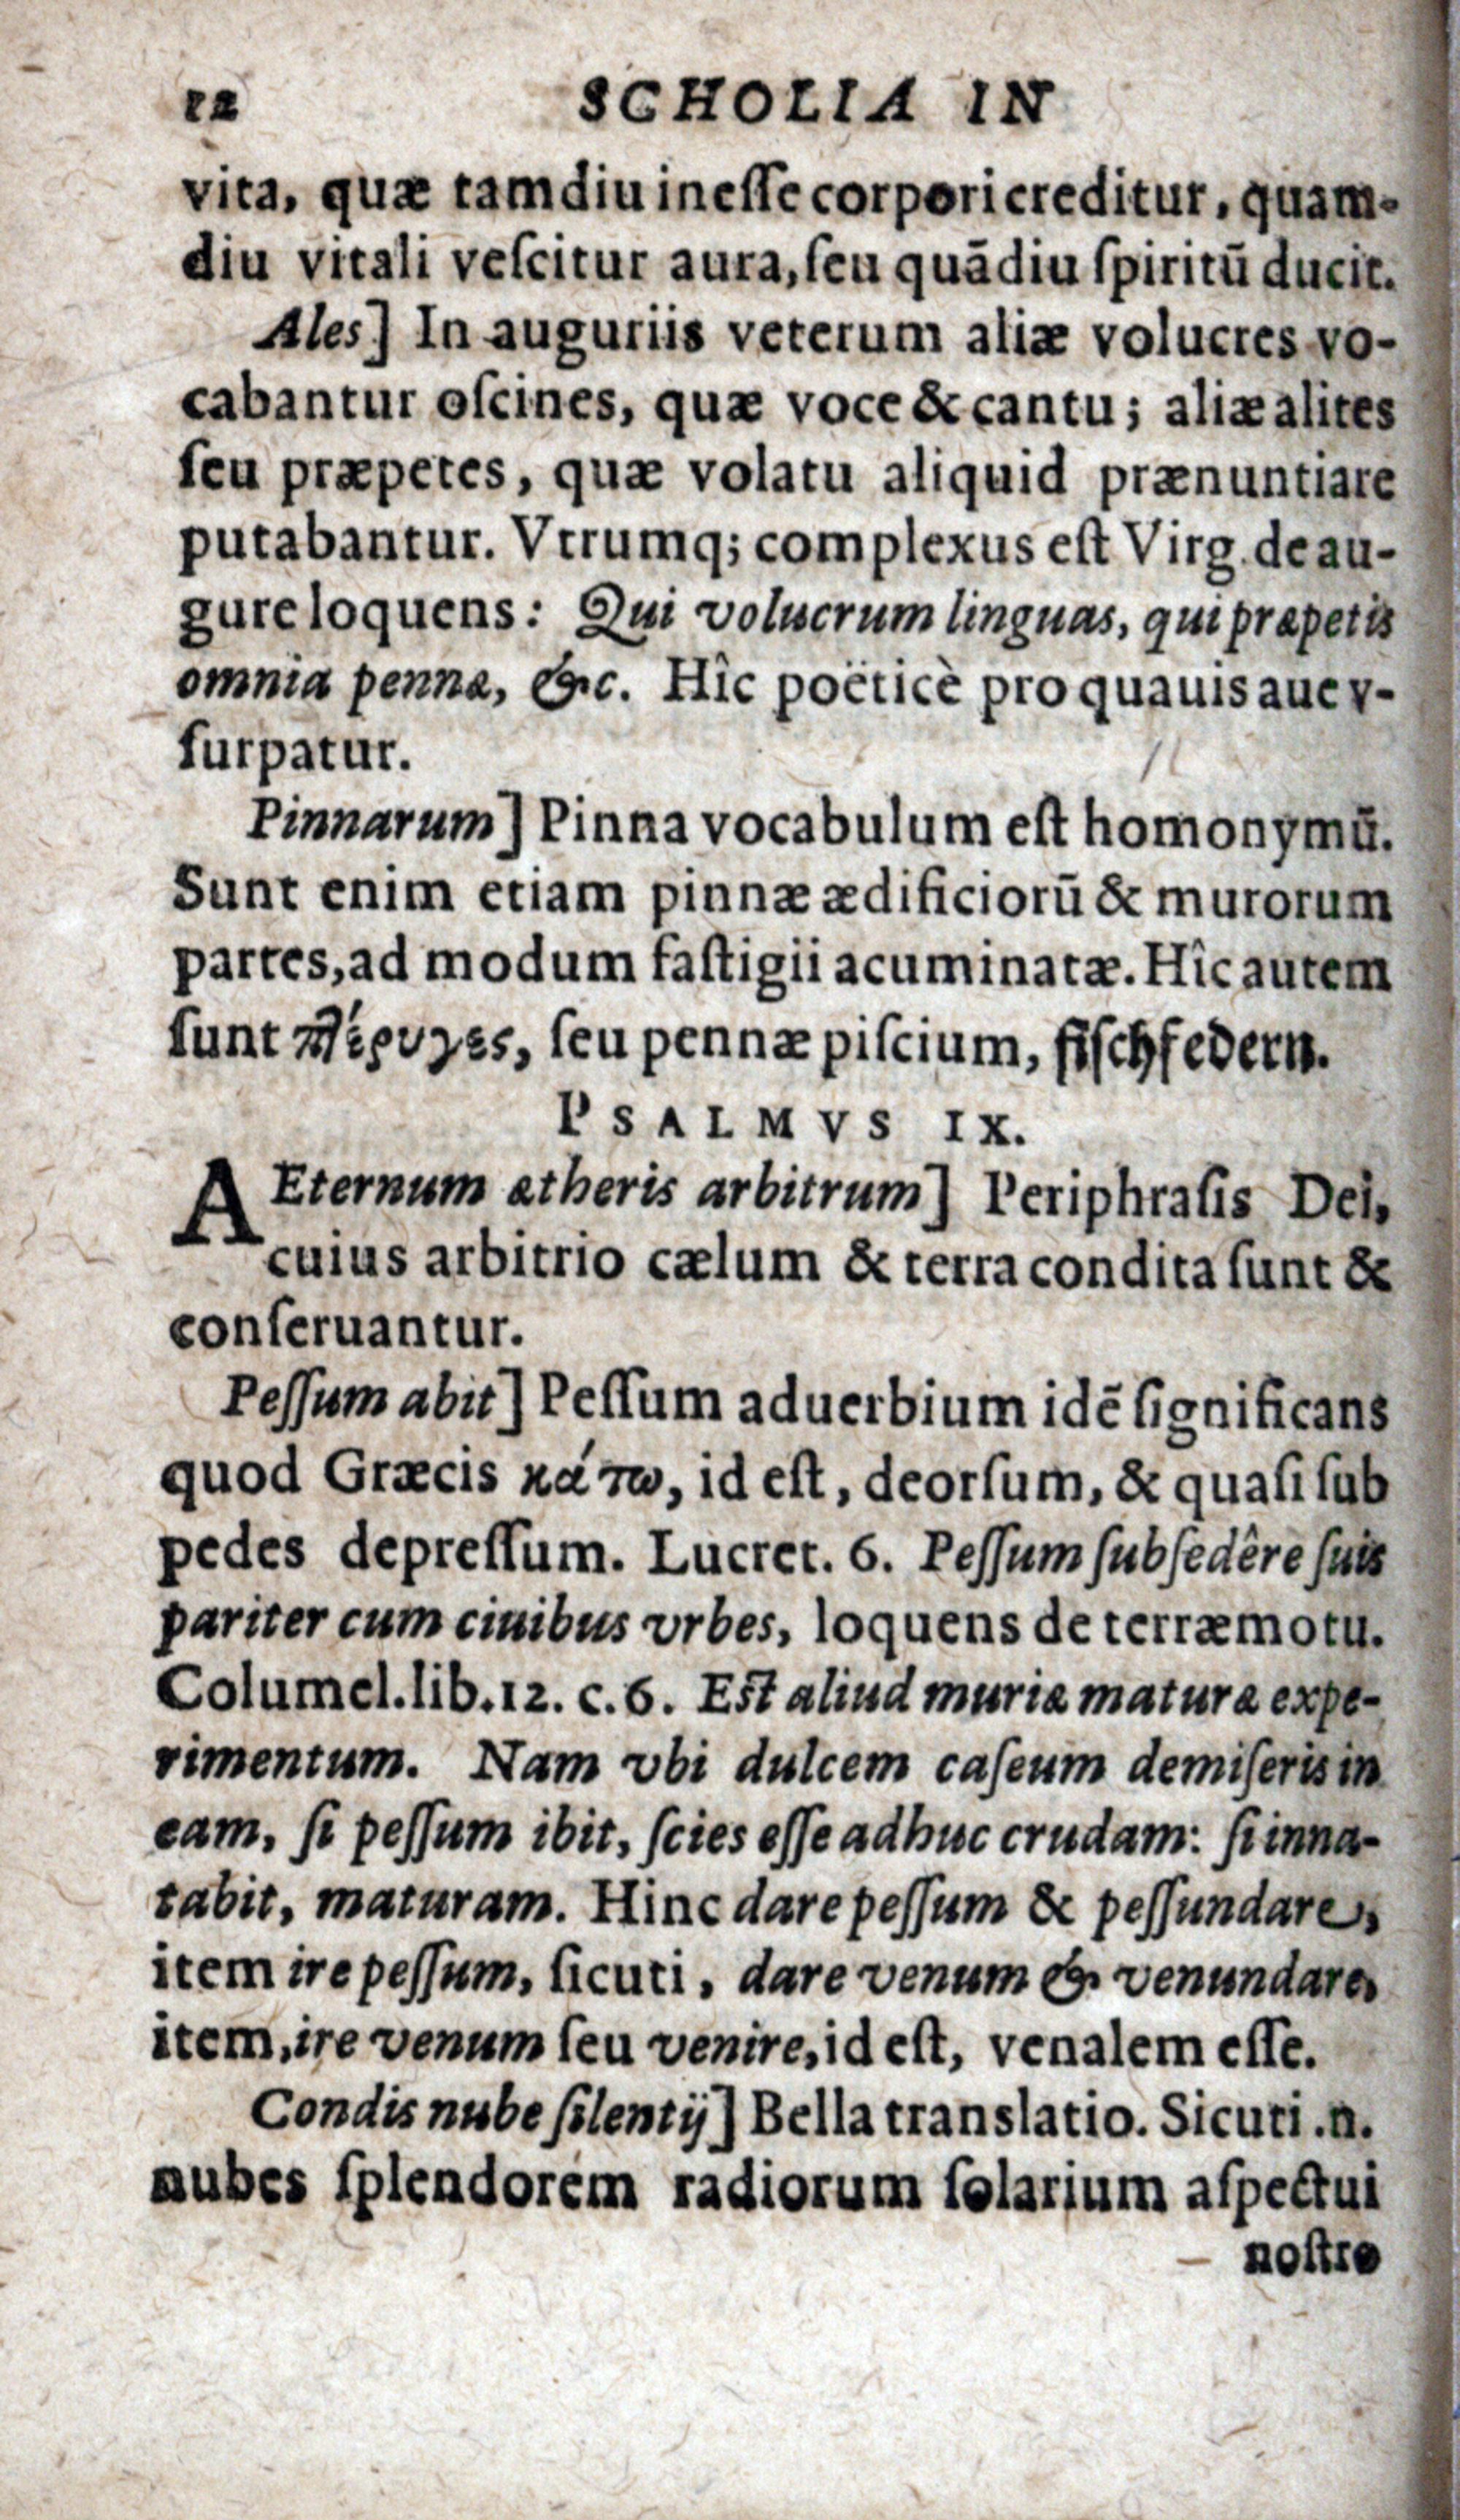 12 SCHOLIA IN
vita, quæ tamdiu ineſſe corpori creditur, quam-
diu vitali veſcitur aura, ſeu quādiu ſpiritū ducit.
Ales] In auguriis veterum aliæ volucres vo-
cabantur oſcines, quæ voce & cantu; aliæ alites
ſeu præpetes, quæ volatu aliquid prænuntiare
putabantur. Vtrumq; complexus eſt Virg. de au-
gure loquens: Qui volucrum linguas, qui præpetis
omnia pennæ, &c. Hîc poëticè pro quauis aue v-
ſurpatur.
Pinnarum] Pinna vocabulum eſt homonymū.
Sunt enim etiam pinnæ ædificiorū & murorum
partes, ad modum faſtigii acuminatæ. Hîc autem
ſunt πτέρυγες, ſeu pennæ piſcium, fiſchfedern.
PSALMVS IX.
AEternum ætheris arbitrum] Periphraſis Dei,
cuius arbitrio cælum & terra condita ſunt &
conſeruantur.
Peſſum abit] Peſſum aduerbium idē ſignificans
quod Græcis κάτω, id eſt, deorſum, & quaſi ſub
pedes depreſſum. Lucret. 6. Peſſum ſubſedêre ſuis
pariter cum ciuibus vrbes, loquens de terræmotu.
Columel. lib. 12. c. 6. Eſt aliud muriæ maturæ expe-
rimentum. Nam vbi dulcem caſeum demiſeris in
eam, ſi peſſum ibit, ſcies eſſe adhuc crudam: ſi inna-
tabit, maturam. Hinc dare peſſum & peſſundare,
item ire peſſum, ſicuti, dare venum & venundare,
item, ire venum ſeu venire, id eſt, venalem eſſe.
Condis nube ſilentij] Bella translatio. Sicuti .n.
nubes ſplendorem radiorum ſolarium aſpectui
noſtro